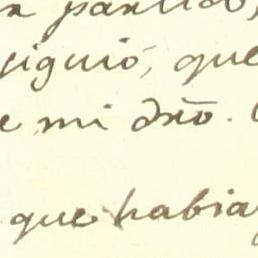 partido,
siguió, que
mi dr̃o.
que habia